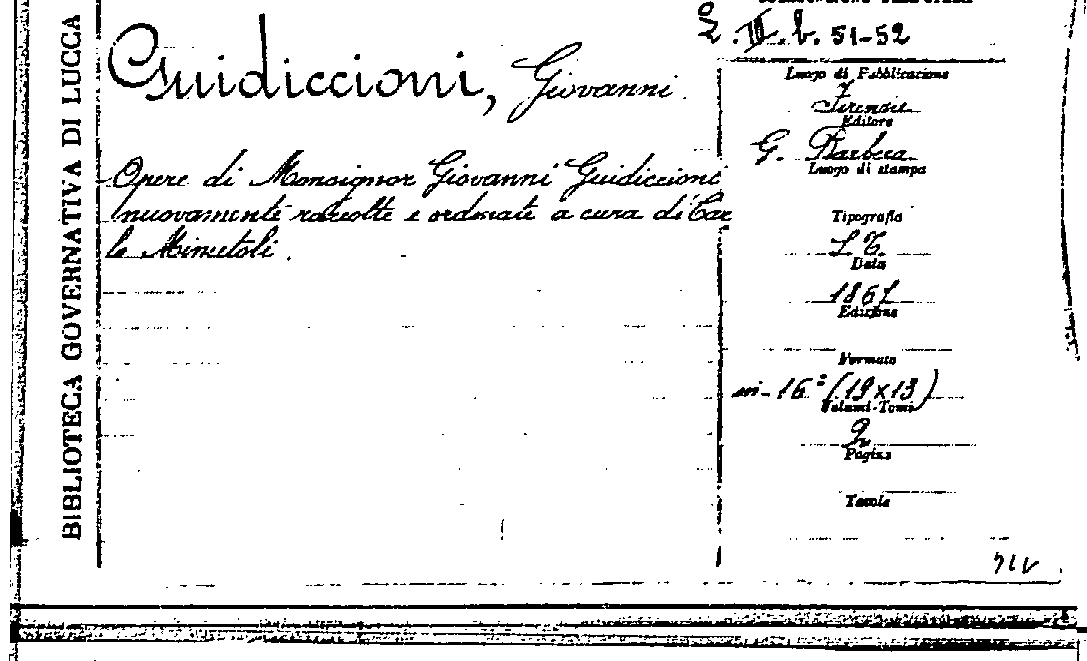 BIBLIOTECA GOVERNATIVA DI LUCCA
Guidiccioni, Giovanni.
Opere di Monsignor Giovanni Guidiccioni
nuovamente raccolte e ordinate a cura di Car
lo Minutoli.
2. III. b. 51-52
Luogo di Pubblicazione
Firenze
Editore
G. Barbera
Luogo di stampa
Tipografia
S. T.
Data
1867
Edizione
Formato
in-16° (19x13)
Volumi-Tomi
2
Pagine
Tavole